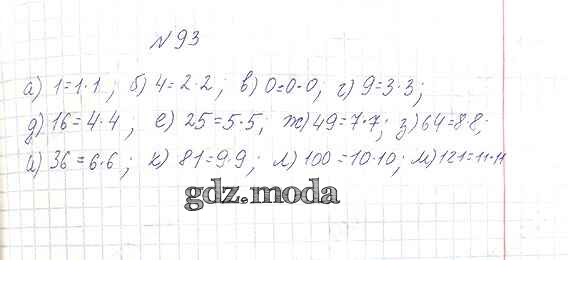 № 93
а) 1=1·1; б) 4=2·2; в) 0=0·0; г) 9=3·3;
д) 16=4·4; е) 25=5·5; ж) 49=7·7; з) 64=8·8;
й) 36=6·6; к) 81=9·9; л) 100=10·10; м) 121=11·11
gdz.moda